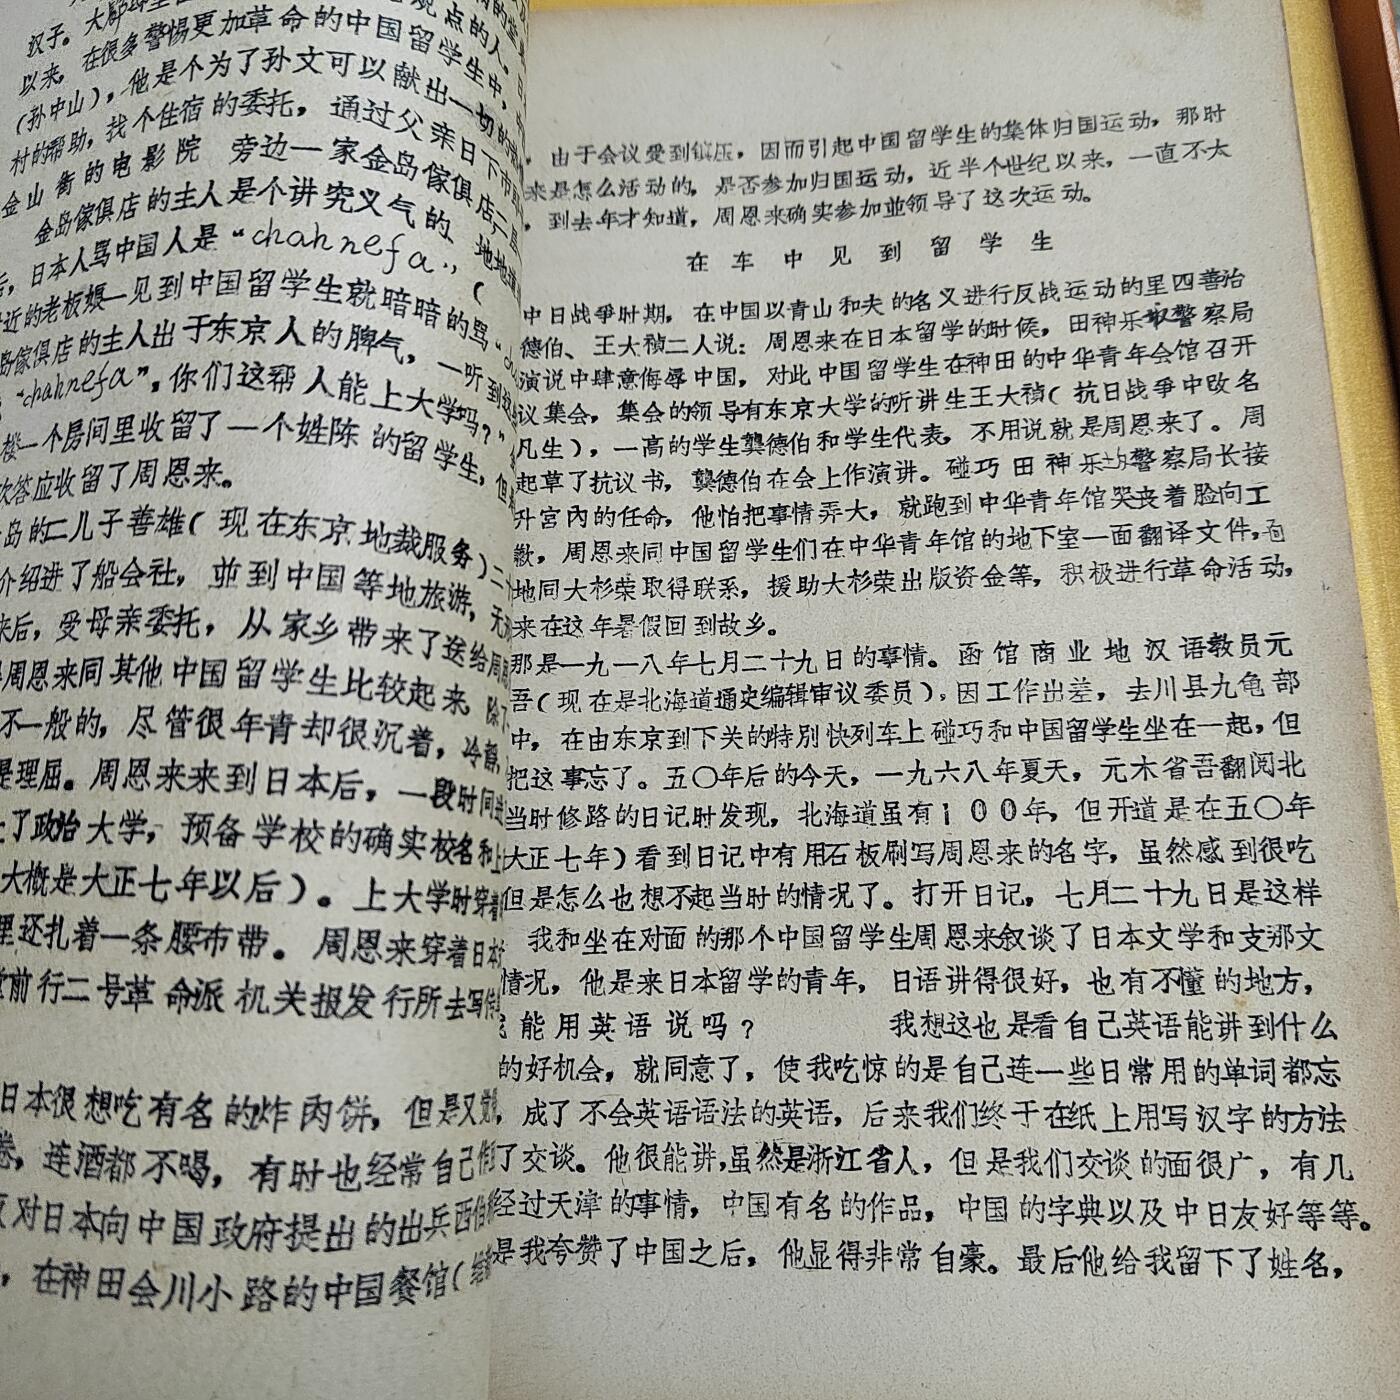 观点的人。
汉子。大部
以来，在很多警惕更加革命的中国留学生中，
（孙中山），他是个为了孙文可以献出一切的
村的帮助，找个住宿的委托，通过父亲日下市
金山街的电影院 旁边一家金岛傢俱店二
金岛傢俱店的主人是个讲究义气的、地地道
后，日本人骂中国人是“chahnefa”，（
近的老板娘一见到中国留学生就暗暗的骂“
岛傢俱店的主人出于东京人的脾气，一听到
“chahnefa”，你们这帮人能上大学吗？”
楼一个房间里收留了一个姓陈的留学生，但
次答应收留了周恩来。
岛的二儿子善雄（现在东京地裁服务）二
介绍进了船会社，並到中国等地旅游，无
来后，受母亲委托，从家乡带来了送给周
周恩来同其他中国留学生比较起来，除了
不一般的，尽管很年青却很沉着，冷静，
是理屈。周恩来来到日本后，一段时间
上了政治大学，预备学校的确实校名和上
大概是大正七年以后）。上大学时穿着
里还扎着一条腰布带。周恩来穿着日本
前行二号革命派机关报发行所去写传
日本很想吃有名的炸肉饼，但是又觉
，连酒都不喝，有时也经常自己作
对日本向中国政府提出的出兵西伯
，在神田会川小路的中国餐馆（
，由于会议受到镇压，因而引起中国留学生的集体归国运动，那时
来是怎么活动的，是否参加归国运动，近半个世纪以来，一直不太
，到去年才知道，周恩来确实参加並领导了这次运动。
在车中见到留学生
中日战争时期，在中国以青山和夫的名义进行反战运动的里四善治
德伯、王大祯二人说：周恩来在日本留学的时候，田神乐坂警察局
演说中肆意侮辱中国，对此中国留学生在神田的中华青年会馆召开
议集会，集会的领导有东京大学的听讲生王大祯（抗日战争中改名
凡生），一高的学生龔德伯和学生代表，不用说就是周恩来了。周
起草了抗议书，龔德伯在会上作演讲。碰巧田神乐坂警察局长接
升宫内的任命，他怕把事情弄大，就跑到中华青年馆哭丧着脸向工
歉，周恩来同中国留学生们在中华青年馆的地下室一面翻译文件，
地同大杉荣取得联系，援助大杉荣出版资金等，积极进行革命活动，
来在这年暑假回到故乡。
那是一九一八年七月二十九日的事情。函馆商业地汉语教员元
吾（现在是北海道通史编辑审议委员），因工作出差，去川县九龟部
中，在由东京到下关的特别快列车上碰巧和中国留学生坐在一起，但
把这事忘了。五〇年后的今天，一九六八年夏天，元木省吾翻阅北
当时修路的日记时发现，北海道虽有100年，但开道是在五〇年
大正七年）看到日记中有用石板刷写周恩来的名字，虽然感到很吃
但是怎么也想不起当时的情况了。打开日记，七月二十九日是这样
我和坐在对面的那个中国留学生周恩来叙谈了日本文学和支那文
情况，他是来日本留学的青年，日语讲得很好，也有不懂的地方，
能用英语说吗？ 我想这也是看自己英语能讲到什么
的好机会，就同意了，使我吃惊的是自己连一些日常用的单词都忘
，成了不会英语语法的英语，后来我们终于在纸上用写汉字的方法
了交谈。他很能讲，虽然是浙江省人，但是我们交谈的面很广，有几
经过天津的事情，中国有名的作品，中国的字典以及中日友好等等。
是我夸赞了中国之后，他显得非常自豪。最后他给我留下了姓名，